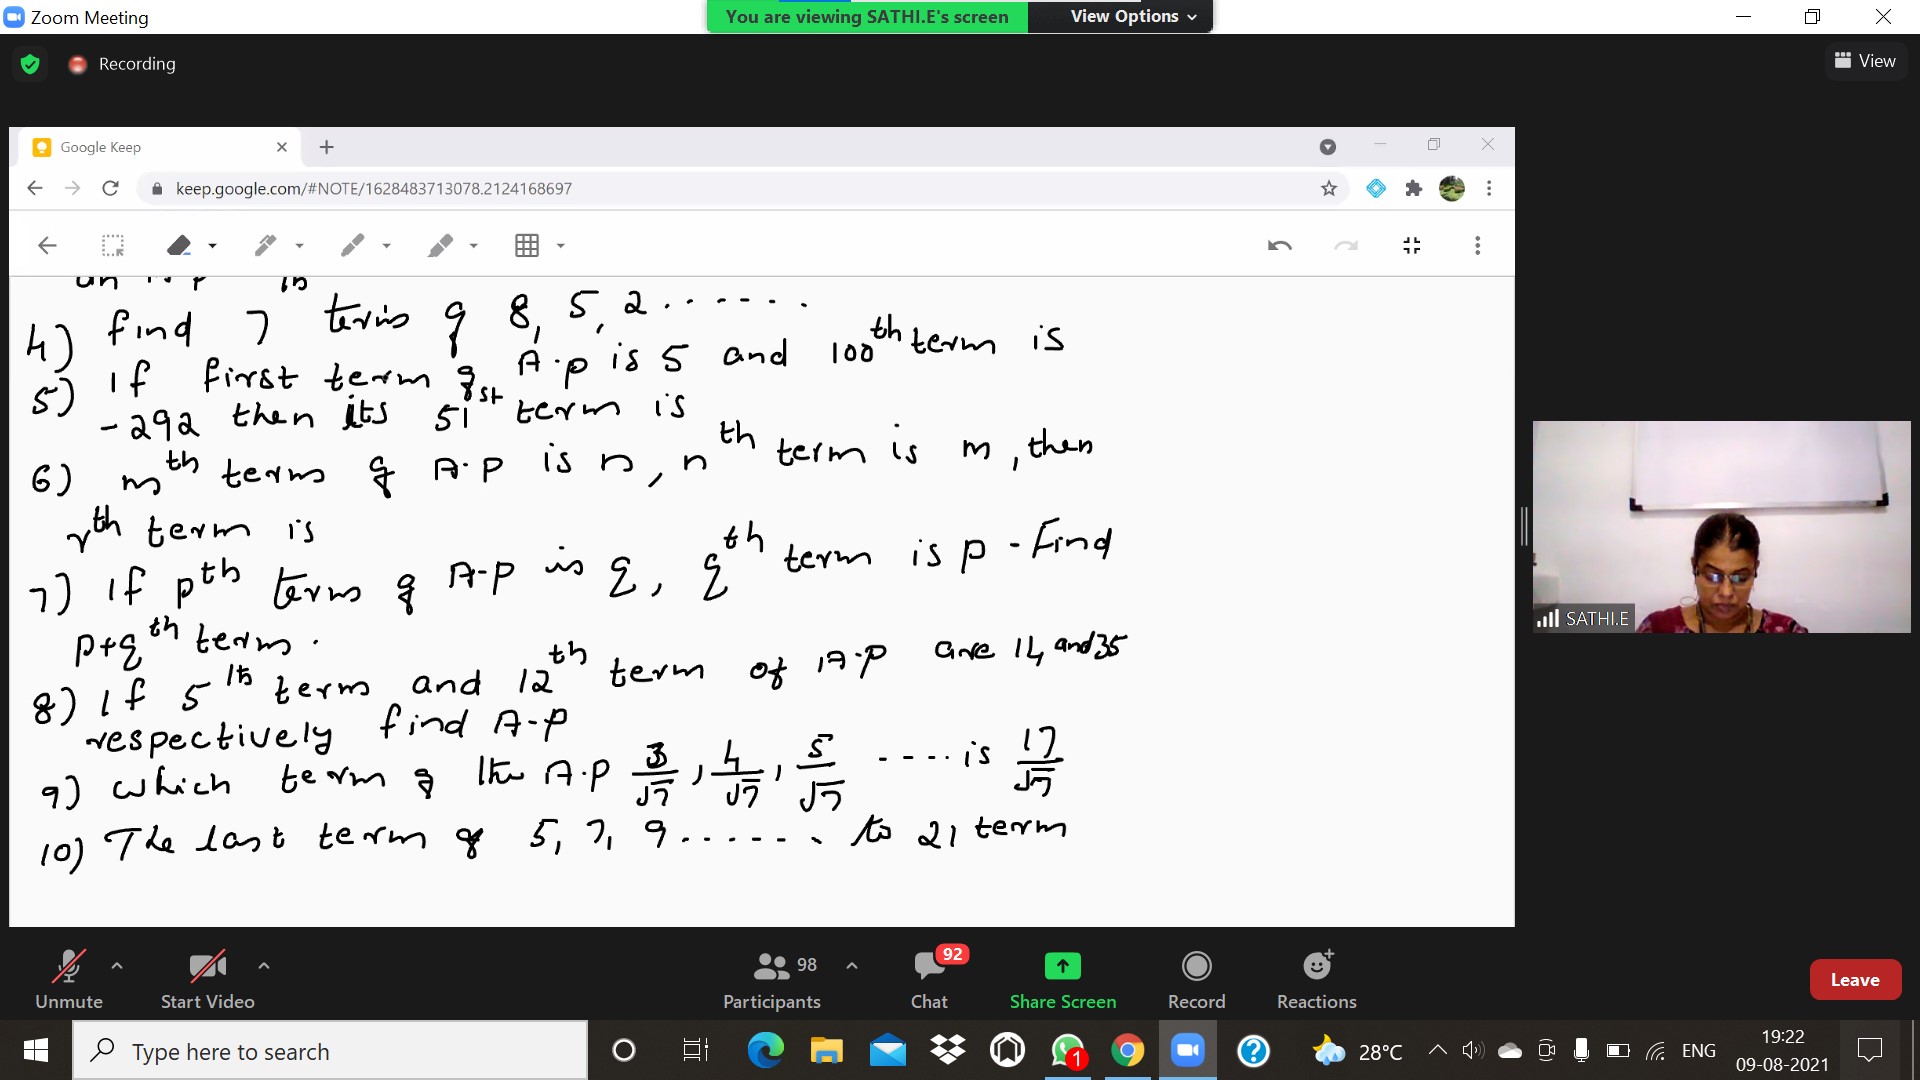 Zoom Meeting
You are viewing SATHI.E's screen
View Options
Recording
View
Google Keep
keep.google.com/#NOTE/1628483713078.2124168697
4) find 7 terms of 8, 5, 2 .......
5) If first term of A.P is 5 and 100th term is
-292 then its 51st term is
6) mth terms of A.P is n, nth term is m, then
rth term is
7) If pth terms of A-P is q, qth term is p - Find
p+qth term.
8) If 5th term and 12th term of A.P are 14 and 35
respectively find A-P
9) which term of the A.P 3/√7, 4/√7, 5/√7 ---- is 17/√7
10) The last term of 5, 7, 9 ....... to 21 term
SATHI.E
Unmute
Start Video
98
Participants
92
Chat
Share Screen
Record
Reactions
Leave
Type here to search
1
28°C
ENG
19:22
09-08-2021